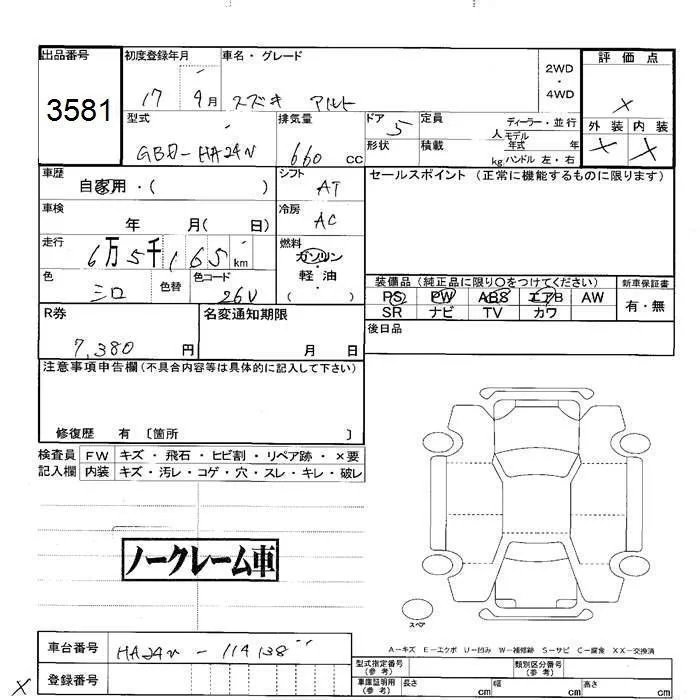 出品番号 初度登録年月 車名・グレード 2WD・4WD 評価点
3581 17 9月 スズキ アルト ×
型式 排気量 ドア 5 定員 人 ディーラー・並行 外装 内装
GBD-HA24V 660 cc 形状 積載 kg モデル年式 年 × ×
ハンドル 左・右
車歴 シフト セールスポイント (正常に機能するものに限ります)
自家用・( ) AT
車検 冷房
年 月( 日) AC
走行 燃料
6万5千165km ガソリン・軽油
色 色替 色コード ( )
シロ 26U
装備品 (純正品に限り○をつけてください) 新車保証書
PS PW ABS エアB AW 有・無
SR ナビ TV カワ
R券 名変通知期限 後日品
7,380 円 月 日
注意事項申告欄 (不具合内容等は具体的に記入して下さい)
修復歴 有 〔箇所 〕
検査員 FW キズ・飛石・ヒビ割・リペア跡・×要
記入欄 内装 キズ・汚レ・コゲ・穴・スレ・キレ・破レ
ノークレーム車
スペア
A-キズ E-エクボ U-凹み W-補修跡 S-サビ C-腐食 XX-交換済
車台番号 HA24V-114138
型式指定番号(参考) 類別区分番号(参考)
× 登録番号
車庫証明用(参考) 長さ cm 幅 cm 高さ cm